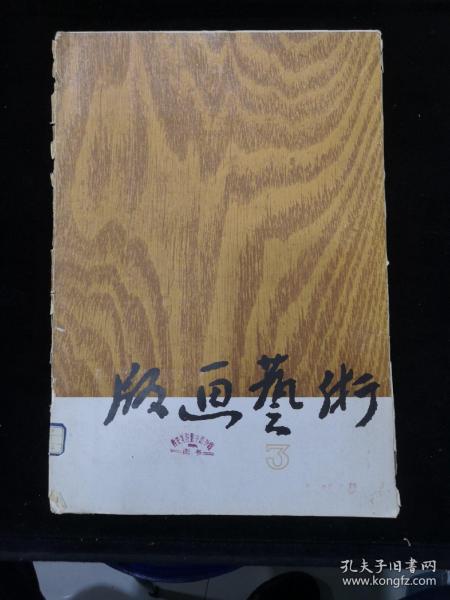 版画藝術
3
图书
孔夫子旧书网
www.kongfz.com